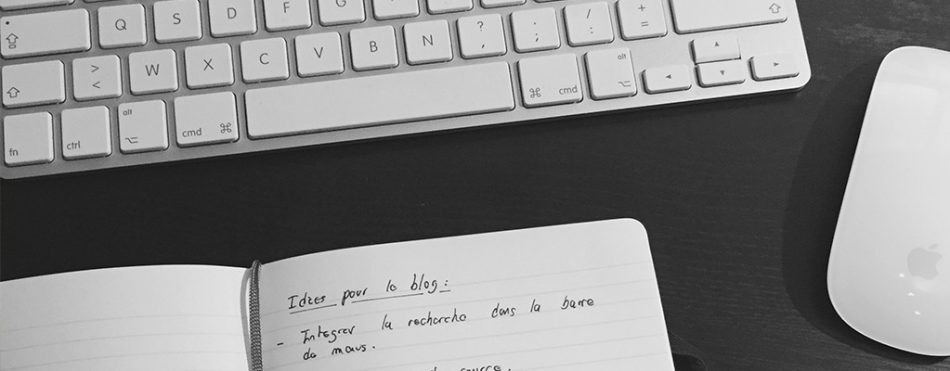 Q S D F G
> < W X C V B N ? , . ; / : + =
fn ctrl alt ⌥ cmd ⌘ ⌘ cmd alt ⌥
Idées pour le blog :
- Integrer la recherche dans la barre
de menus.
source.